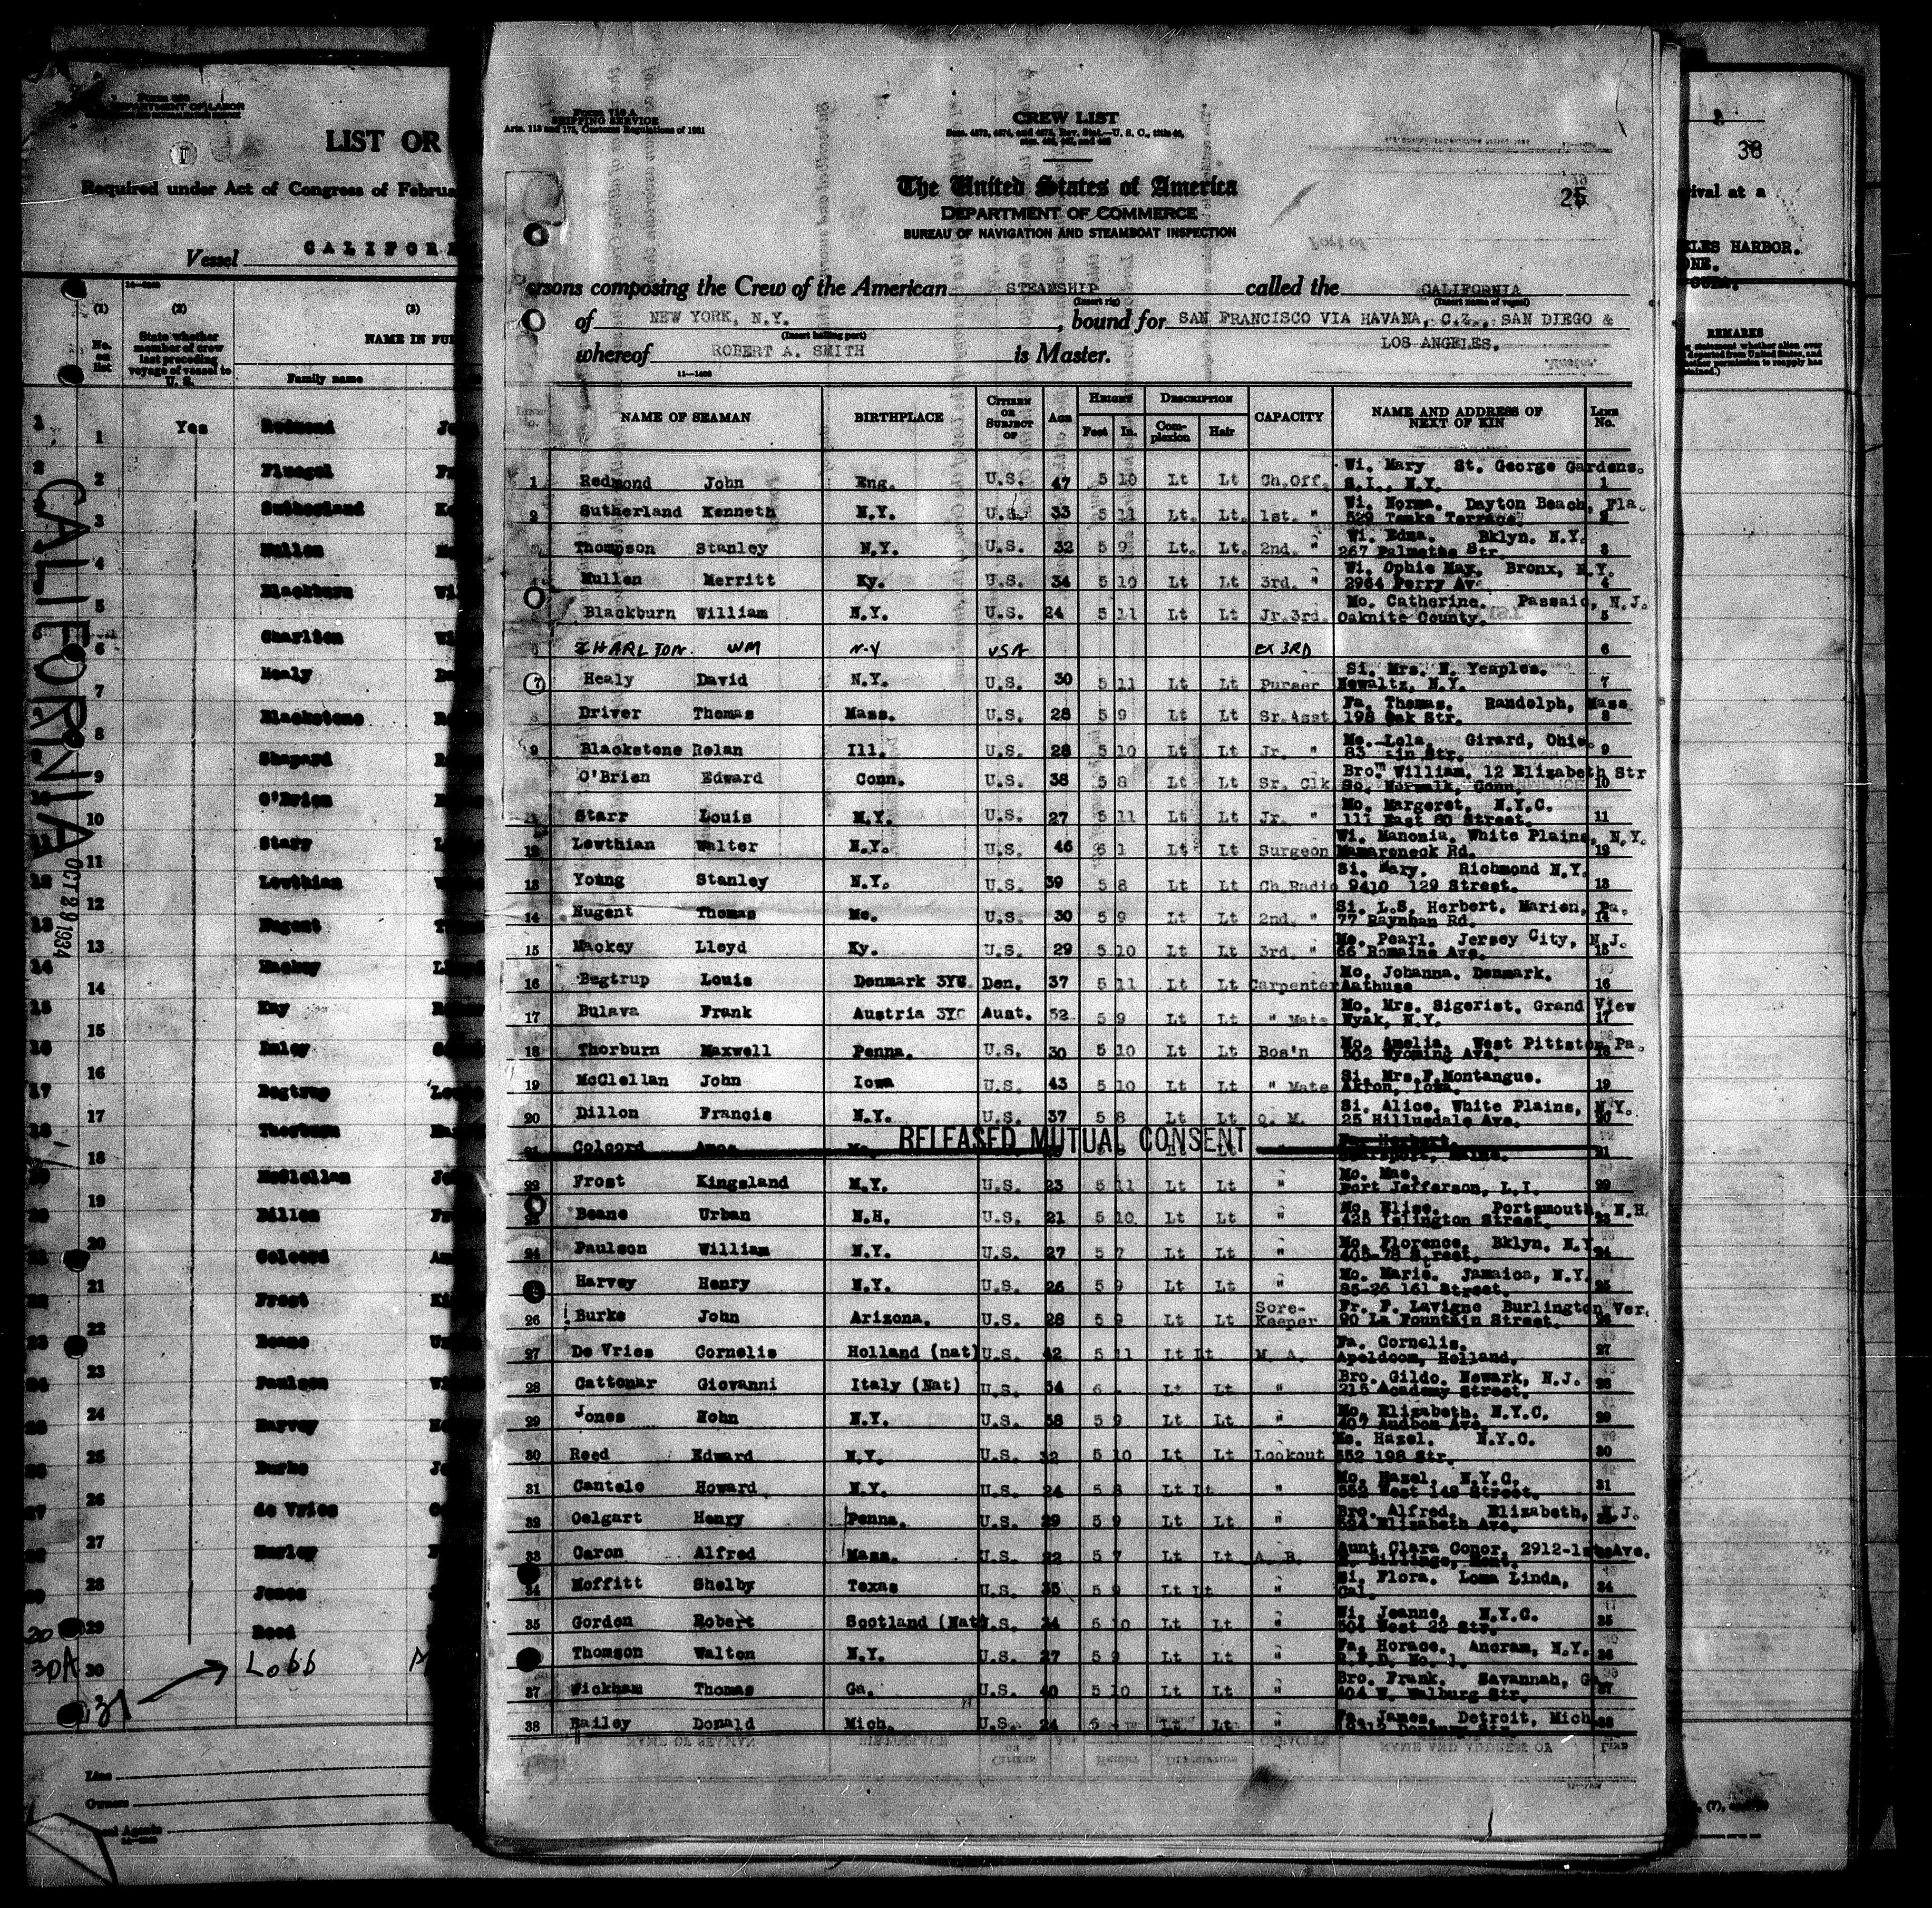 LIST OR
Required under Act of Congress of Februa
Vessel CALIFOR
(1) (2) (3)
No. on list
State whether member of crew last preceding voyage of vessel to U. S.
NAME IN FUL
Family name
CALIFORNIA
OCT 29 1934
1 Yes Redmond
2 Fluegel
3 Sutherland
4 Mullen
5 Blackburn Wi
6 Charlton
7 Healy
8 Blackstone
9 Shepard
10 O'Brien
11 Starr
12 Lowthian
13 Nugent
14 Mackey
15 Kay
16 Imley
17 Begtrup Lou
18 Thorburn
19 McClellan
20 Dillon
21 Colcord
22 Frost
23 Beane
24 Paulson
25 Harvey
26 Burke
27 de Vries
28 Hurley
29 Jones
30 Reed
30A Lobb
31
Line
Owners
Form 710 A
SHIPPING SERVICE
Arts. 113 and 175, Customs Regulations of 1931
CREW LIST
25
The United States of America
DEPARTMENT OF COMMERCE
BUREAU OF NAVIGATION AND STEAMBOAT INSPECTION
ersons composing the Crew of the American STEAMSHIP called the CALIFORNIA
(Insert rig) (Insert name of vessel)
of NEW YORK, N.Y. , bound for SAN FRANCISCO VIA HAVANA, C.Z., SAN DIEGO &
(Insert hailing port)
whereof ROBERT A. SMITH is Master. LOS ANGELES.
NAME OF SEAMAN BIRTHPLACE CITIZEN OR SUBJECT OF AGE HEIGHT Feet In. DESCRIPTION Complexion Hair CAPACITY NAME AND ADDRESS OF NEXT OF KIN LINE No.
1 Redmond John Eng. U.S. 47 5 10 Lt Lt Ch.Off. Wi. Mary St. George Gardens. S.I., N.Y. 1
2 Sutherland Kenneth N.Y. U.S. 33 5 11 Lt. Lt. 1st. " Wi. Norma. Dayton Beach, Fla. 529 Tomka Terrace. 2
Thompson Stanley N.Y. U.S. 32 5 9 Lt. Lt. 2nd. " Wi. Edna. Bklyn. N.Y. 267 Palmetto Str. 3
4 Mullen Merritt Ky. U.S. 34 5 10 Lt Lt 3rd. " Wi. Ophie May. Bronx, N.Y. 2964 Perry Av. 4
Blackburn William N.Y. U.S. 24 5 11 Lt Lt Jr.3rd. Mo. Catherine. Passaic, N.J. Oaknite County. 5
6 CHARLTON WM N-Y USA EX 3RD 6
7 Healy David N.Y. U.S. 30 5 11 Lt Lt Purser Si. Mrs. N. Yeaples. Newaltz, N.Y. 7
8 Driver Thomas Mass. U.S. 28 5 9 Lt Lt Sr.Asst Fa. Thomas. Randolph, Mass 198 Oak Str. 8
9 Blackstone Rolan Ill. U.S. 28 5 10 Lt Lt Jr. " Mo. Lola. Girard, Ohio. 83 Str. 9
O'Brien Edward Conn. U.S. 38 5 8 Lt Lt Sr. Clk Bro. William. 12 Elizabeth Str So. Norwalk, Conn. 10
Starr Louis N.Y. U.S. 27 5 11 Lt Lt Jr. " Mo. Margeret. N.Y.C. 111 East 80 Street. 11
12 Lowthian Walter N.Y. U.S. 46 6 1 Lt Lt Surgeon Wi. Manonia, White Plains, N.Y. Mamaroneck Rd. 12
13 Young Stanley N.Y. U.S. 39 5 8 Lt Lt Ch.Radio Si. Mary. Richmond N.Y. 9410 129 Street. 13
14 Nugent Thomas Mo. U.S. 30 5 9 Lt Lt 2nd. " Si. L.S. Herbert. Marion, Pa. 77 Raynhan Rd. 14
15 Mackey Lloyd Ky. U.S. 29 5 10 Lt Lt 3rd. " Mo. Pearl. Jersey City, N.J. 66 Romaine Ave. 15
16 Begtrup Louis Denmark Den. 37 5 11 Lt Lt Carpenter Mo. Johanna. Denmark. Aathuse 16
17 Bulava Frank Austria Aust. 52 5 9 Lt Lt " Mate Mo. Mrs. Sigerist. Grand View Nyak, N.Y. 17
18 Thorburn Maxwell Penna. U.S. 30 5 10 Lt Lt Bos'n Mo. Amelia. West Pittston Pa. 502 Wyoming Ave. 18
19 McClellan John Iowa U.S. 43 5 10 Lt Lt " Mate Si. Mrs.F.Montangue. Akron, Iowa. 19
20 Dillon Francis N.Y. U.S. 37 5 8 Lt Lt Q. M. Si. Alice. White Plains, N.Y. 25 Hillusdale Ave. 20
21 Colcord Amos RELEASED MUTUAL CONSENT Herbert. 21
22 Frost Kingsland N.Y. U.S. 23 5 11 Lt Lt " Mo. Mae. Port Jefferson, L.I. 22
Beane Urban N.H. U.S. 21 5 10 Lt Lt " Mo. Elise. Portsmouth N.H. 425 Islington Street. 23
24 Paulson William N.Y. U.S. 27 5 7 Lt Lt " Mo. Florence. Bklyn. N.Y. 24
Harvey Henry N.Y. U.S. 26 5 9 Lt Lt " Mo. Marie. Jamaica, N.Y. 85-26 161 Street. 25
26 Burke John Arizona. U.S. 28 5 9 Lt Lt Sore-Keeper Fr. F. Lavigne Burlington Ver. 90 La Fountain Street. 26
27 De Vries Cornelis Holland (nat) U.S. 42 5 11 Lt Lt M. A. Fa. Cornelis. Apeldoom, Holland. 27
28 Cattonar Giovanni Italy (Nat) U.S. 34 6 - Lt Lt " Bro. Gildo. Newark, N.J. 215 Academy Street. 28
29 Jones Hohn N.Y. U.S. 38 5 9 Lt Lt " Mo. Elizabeth. N.Y.C. 29
30 Reed Edward N.Y. U.S. 32 5 10 Lt Lt Lookout Mo. Hazel. N.Y.C. 552 198 Str. 30
31 Cantelo Howard N.Y. U.S. 24 5 8 Lt Lt " Mo. Hazel, N.Y.C. 552 West 148 Street. 31
32 Oelgart Henry Penna. U.S. 29 5 9 Lt Lt " Bro. Alfred. Elizabeth, N.J. 524 Elizabeth Ave.
33 Caron Alfred Mass. U.S. 22 5 7 Lt Lt A. B. Aunt Clara Conor, 2912-1st Ave. Billings, Mont.
34 Moffitt Shelby Texas U.S. 35 5 9 Lt Lt " Si. Flora. Loma Linda, Cal. 34
35 Gordon Robert Scotland (Nat) U.S. 34 5 10 Lt Lt " Wi. Jeanne. N.Y.C. 504 West 22 Str. 35
Thomson Walton N.Y. U.S. 27 5 9 Lt Lt " Fa. Horace. Ancram, N.Y. R.F.D. No. 1. 36
37 Wickham Thomas Ga. U.S. 40 5 10 Lt Lt " Bro. Frank. Savannah, Ga. 404 W. Walburg Str. 37
38 Bailey Donald Mich. U.S. 24 6 - Lt Lt " Fa. James. Detroit, Mich. 38
38
ival at a
LES HARBOR.
REMARKS